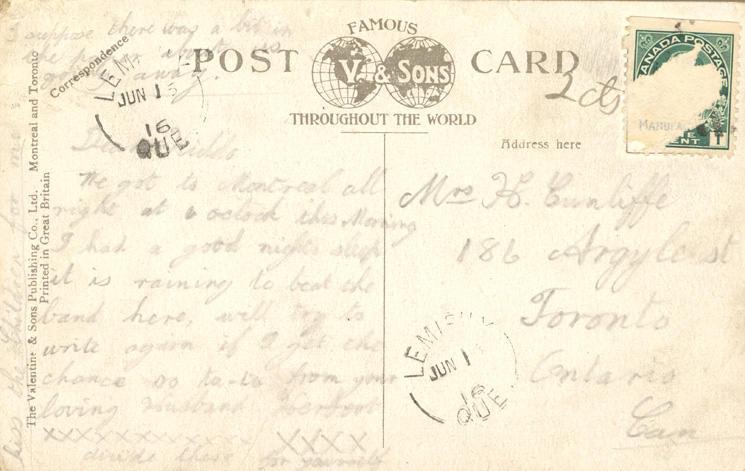 suppose there was a bit in
the about us
going away.
Correspondence
FAMOUS
POST CARD
V. & SONS
THROUGHOUT THE WORLD
LEM
JUN 1
16
QUE
2 cts
CANADA POSTAGE
Address here
Mrs H. Cunliffe
186 Argyle st
Toronto
Ontario
Can
LEMI
JUN 1
16
QUE.
We got to Montreal all
right at 6 oclock this Morning
I had a good nights sleep
it is raining to beat the
band here, will try to
write again if I get the
chance so ta-ta from your
loving Husband Herbert
XXXXXXXXXXXX XXXX
divide these for yourself
kiss the Children for me
The Valentine & Sons Publishing Co., Ltd. Montreal and Toronto
Printed in Great Britain